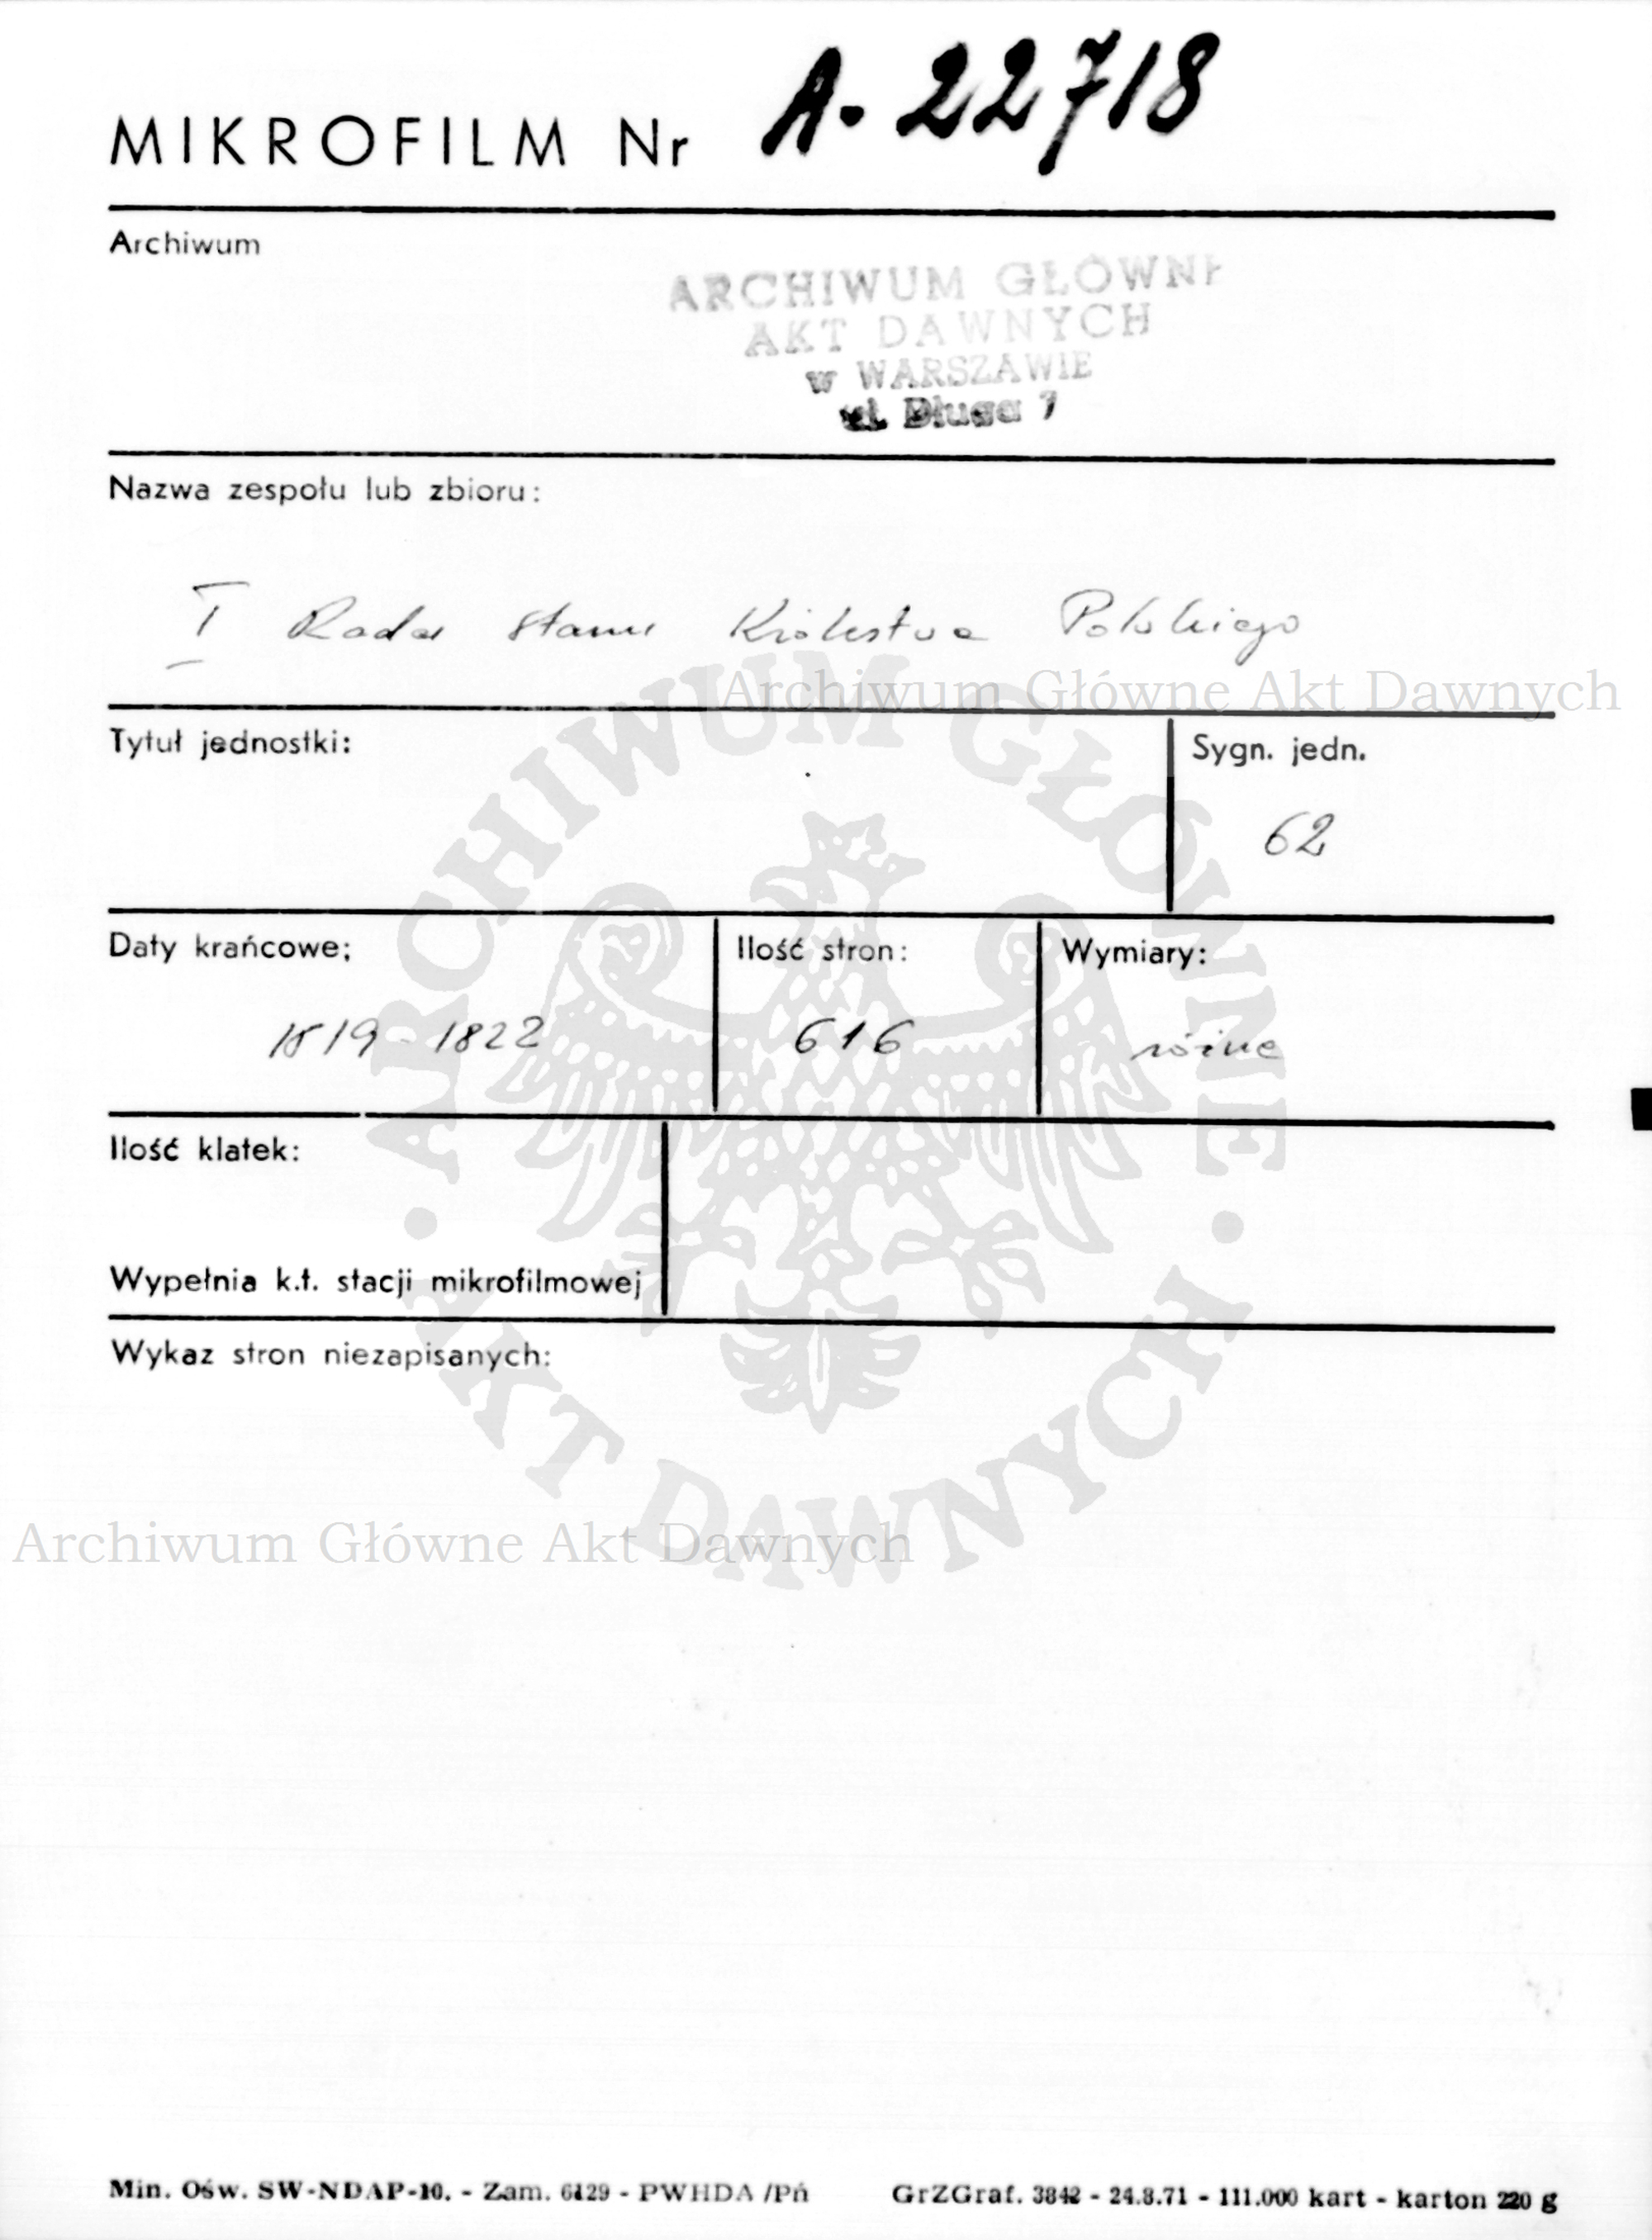 MIKROFILM Nr A-22718
Archiwum
ARCHIWUM GŁÓWNE
AKT DAWNYCH
w WARSZAWIE
ul. Długa 7
Nazwa zespołu lub zbioru:
I Rada Stanu Królestwa Polskiego
Archiwum Główne Akt Dawnych
Tytuł jednostki:
Sygn. jedn.
62
Daty krańcowe;
Ilość stron:
Wymiary:
1819-1822
616
różne
Ilość klatek:
Wypełnia k.t. stacji mikrofilmowej
Wykaz stron niezapisanych:
ARCHIWUM GŁÓWNE • AKT DAWNYCH •
Archiwum Główne Akt Dawnych
Min. Ośw. SW-NDAP-10. - Zam. 6129 - PWHDA /Pń
GrZGraf. 3842 - 24.8.71 - 111.000 kart - karton 220 g